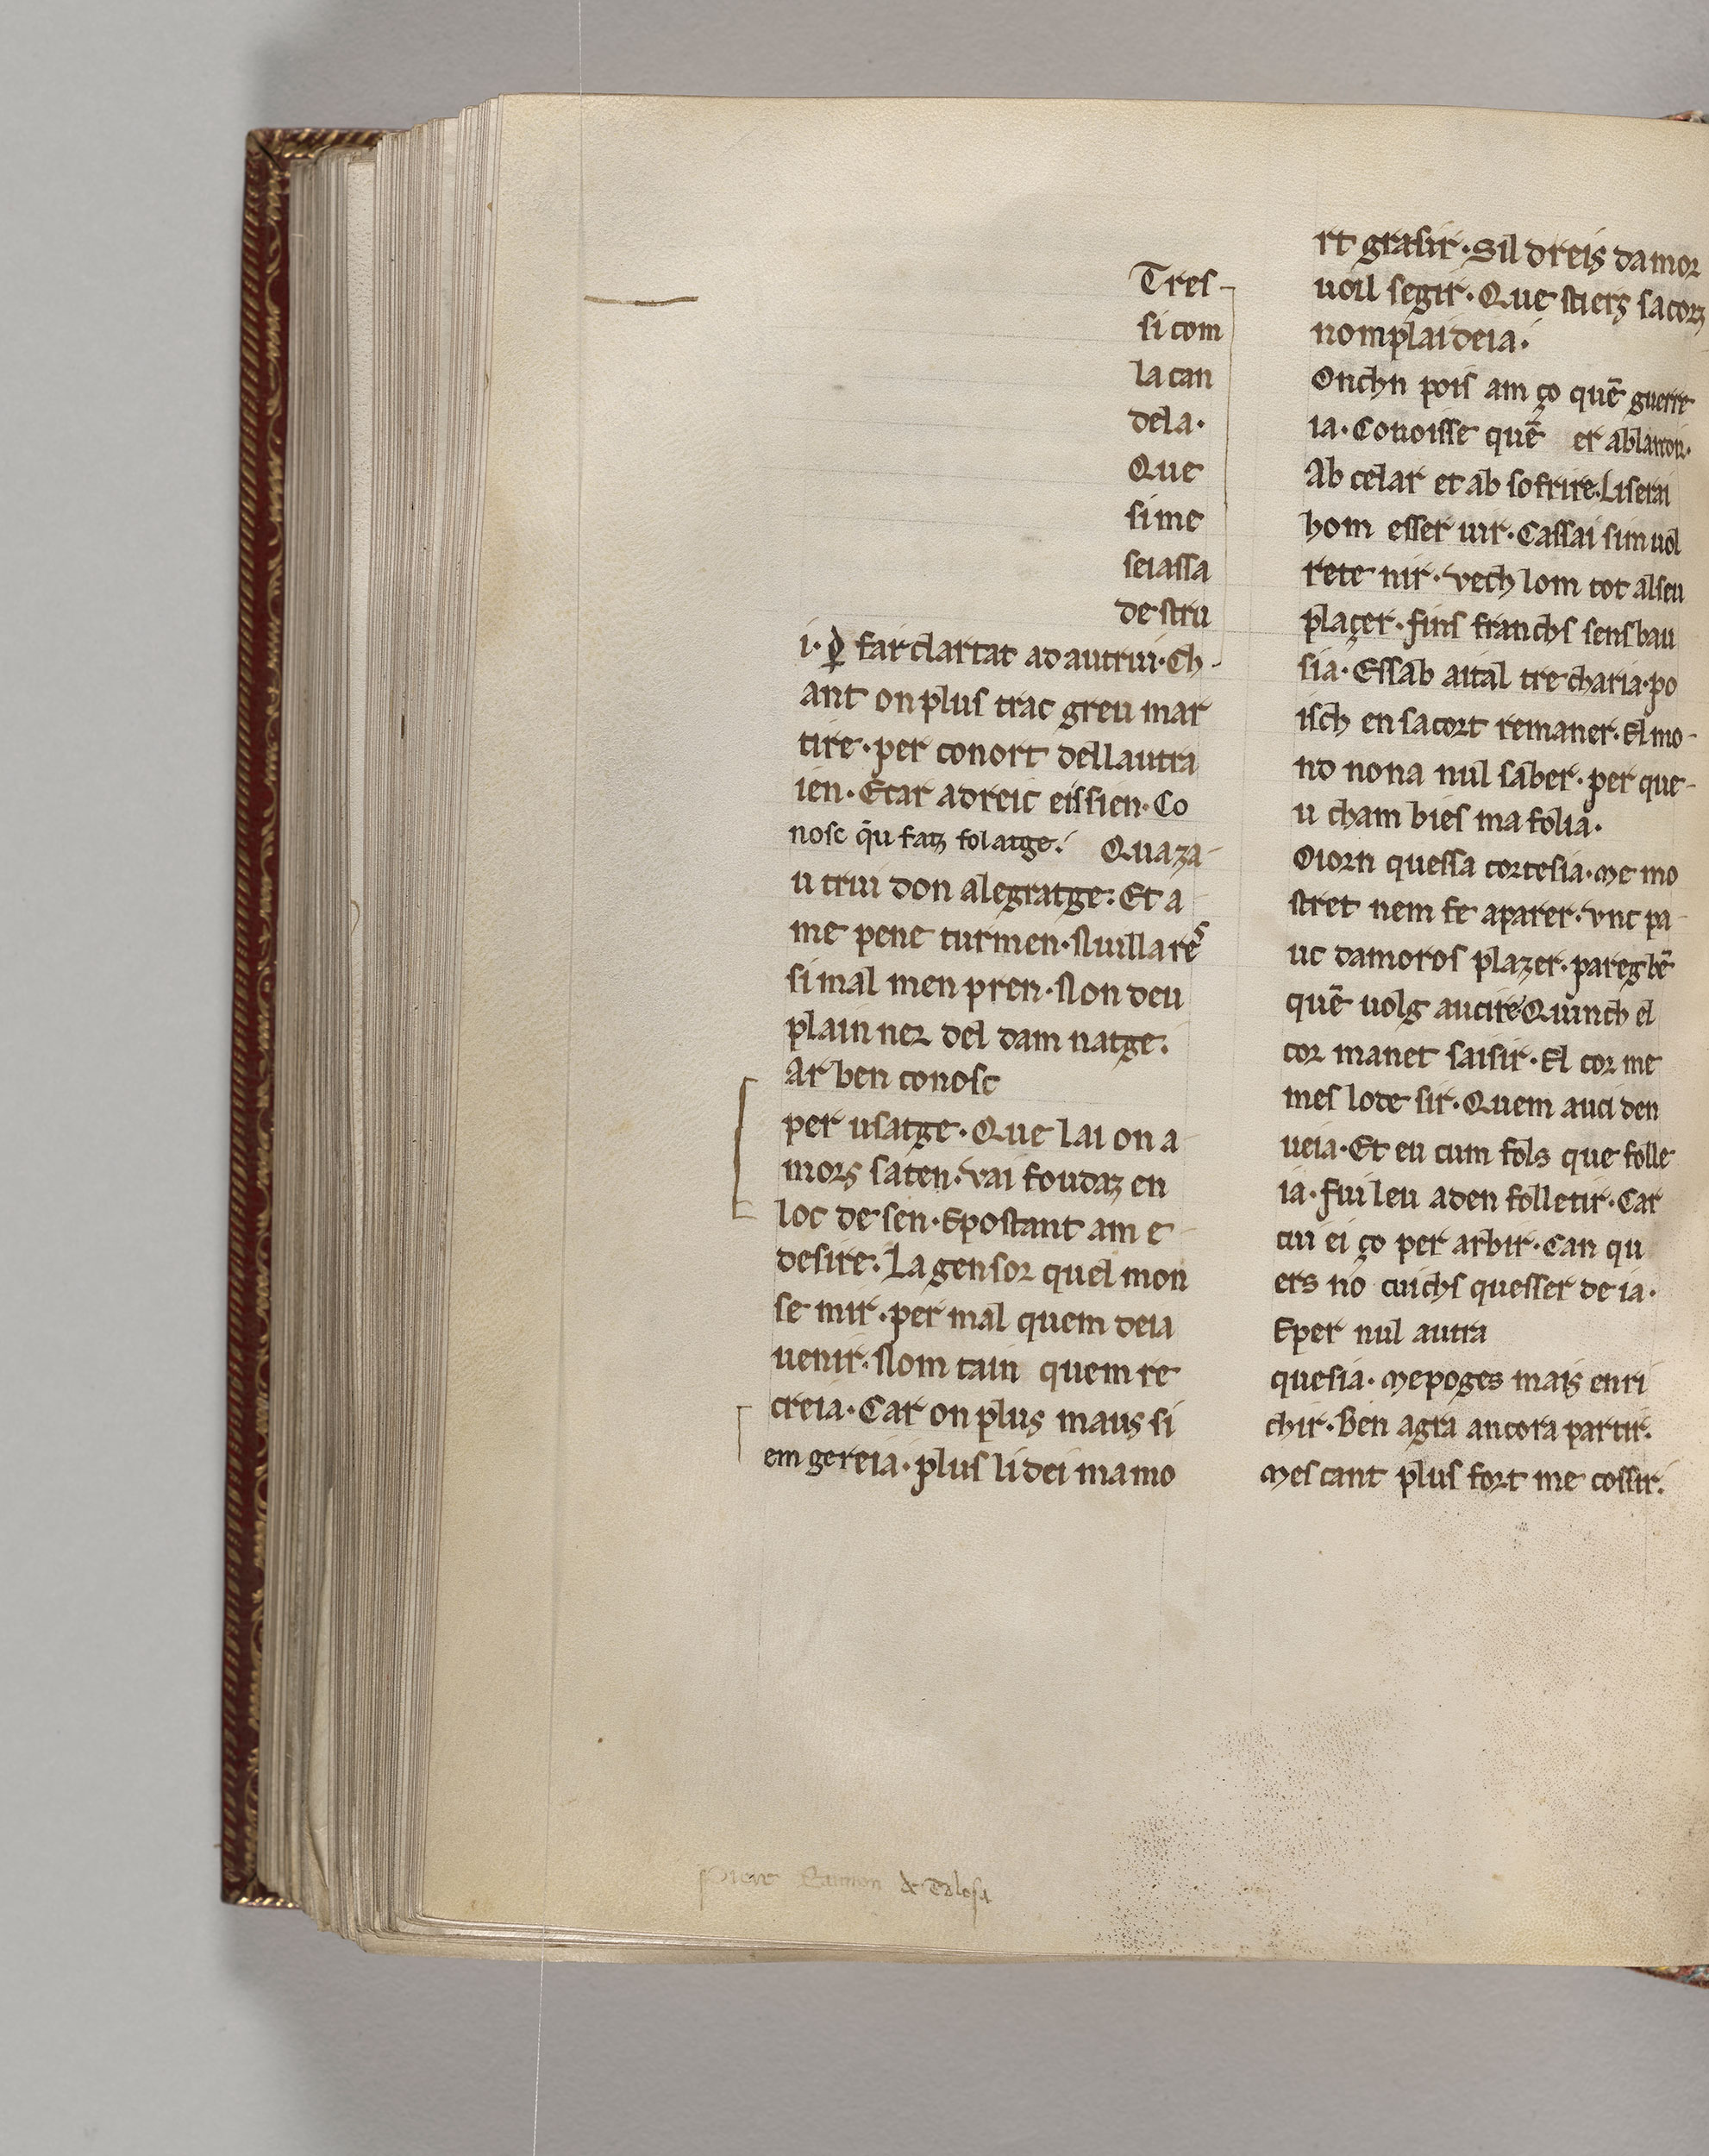 Tres
si com
la can
dela·
Que
si me
seiassa
destru
i· ꝑ far clartat ad autrui· Ch
ant on plus trac greu mar
tire· per conort dell autra
ien· Etar adreic eissien· Co
nosc q̄u fatz folatge· Quaza
utrui don alegratge· Et a
me pene turmen· Nuilla res
si mal men pren· Non deu
plainnez del damnatge·
Ar ben conosc
per usatge· Que lai on a
mors saten· Vai foudaz en
loc de sen· Epostant am e
desire· La gensor quel mon
se mir· per mal quem deia
uenir· Nom tain quem re
creia· Car on plus maus si
em gereia· plus li dei ma mo
rt grasir· Sil dreis damor
uoil segir· Que stiers sa corz
nom plaideia·
Onchn pois am ço quē guerre
ia· Conoisse quē er ablanton·
Ab celar et ab sofrire· Li serai
hom esser uir· Cassai sim uol
retenir· Vech lom tot al seu
plaçer· fins franchs sens bau
sia· Essab aital trecharia· po
isch en sa cort remaner· El mo
nd non a nul saber· per que
u cham bies ma folia·
Oiorn quessa cortesia· me mo
stret nem fe aparer· vnc pa
uc damoros plazer· pareg bē
quē uolg aucire· Quinch el
cor manet saisir· El cor me
mes lo desir· Quem auci den
ueia· Et eu cum fols que folle
ia· fui leu aden folletir· Car
cui ei ço per arbir· Can qu
ers nō cuichs quesser deia·
Eper nul autra
que sia· me poges mais enri
chir· Ben agra ancora partir·
Mes cant plus fort me cossir·
Piere Raimon de Tolosa